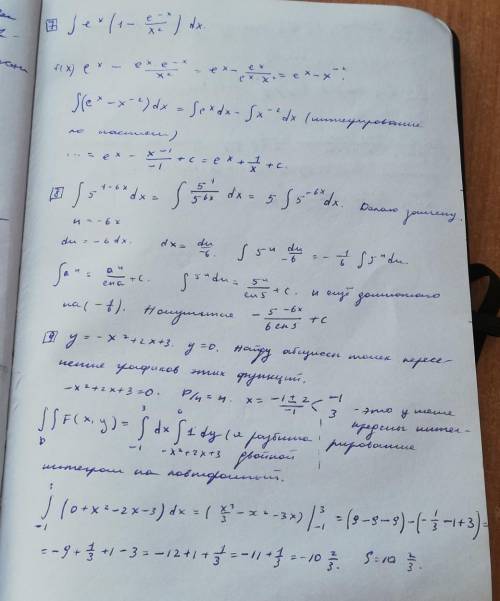 7 ∫ e^x (1 - e^-x/x²) dx.
f(x) e^x - e^x · e^-x/x² = e^x - e^x/(e^x · x²) = e^x - x^-2.
∫(e^x - x^-2) dx = ∫e^x dx - ∫x^-2 dx (интегрирование
по частям)
... = e^x - x^-1/-1 + c = e^x + 1/x + c.
8 ∫ 5^(1-6x) dx = ∫ 5^1/5^6x dx = 5 ∫ 5^-6x dx. Делаю замену.
u = -6x
du = -6 dx. dx = du/-6. ∫ 5^u du/-6 = -1/6 ∫ 5^u du.
∫a^u = a^u/ln a + c. ∫5^u du = 5^u/ln 5 + c. и ещё домножаю
на (-1/6). Получится - 5^-6x/6 ln 5 + c
9 y = -x² + 2x + 3. y = 0. Найду абциссы точек пересе-
чения графиков этих функций.
-x² + 2x + 3 = 0. D/4 = 4. x = (-1 ± 2)/-1 < -1 3 - это у меня
пределы интег-
рирования
∫∫_D F(x, y) = ∫_-1^3 dx ∫_(-x²+2x+3)^0 1 dy (я разбила двойной
интеграл на повторный).
∫_-1^3 (0 + x² - 2x - 3) dx = (x³/3 - x² - 3x) |_-1^3 = (9 - 9 - 9) - (-1/3 - 1 + 3) =
= -9 + 1/3 + 1 - 3 = -12 + 1 + 1/3 = -11 + 1/3 = -10 2/3. S = 10 2/3.